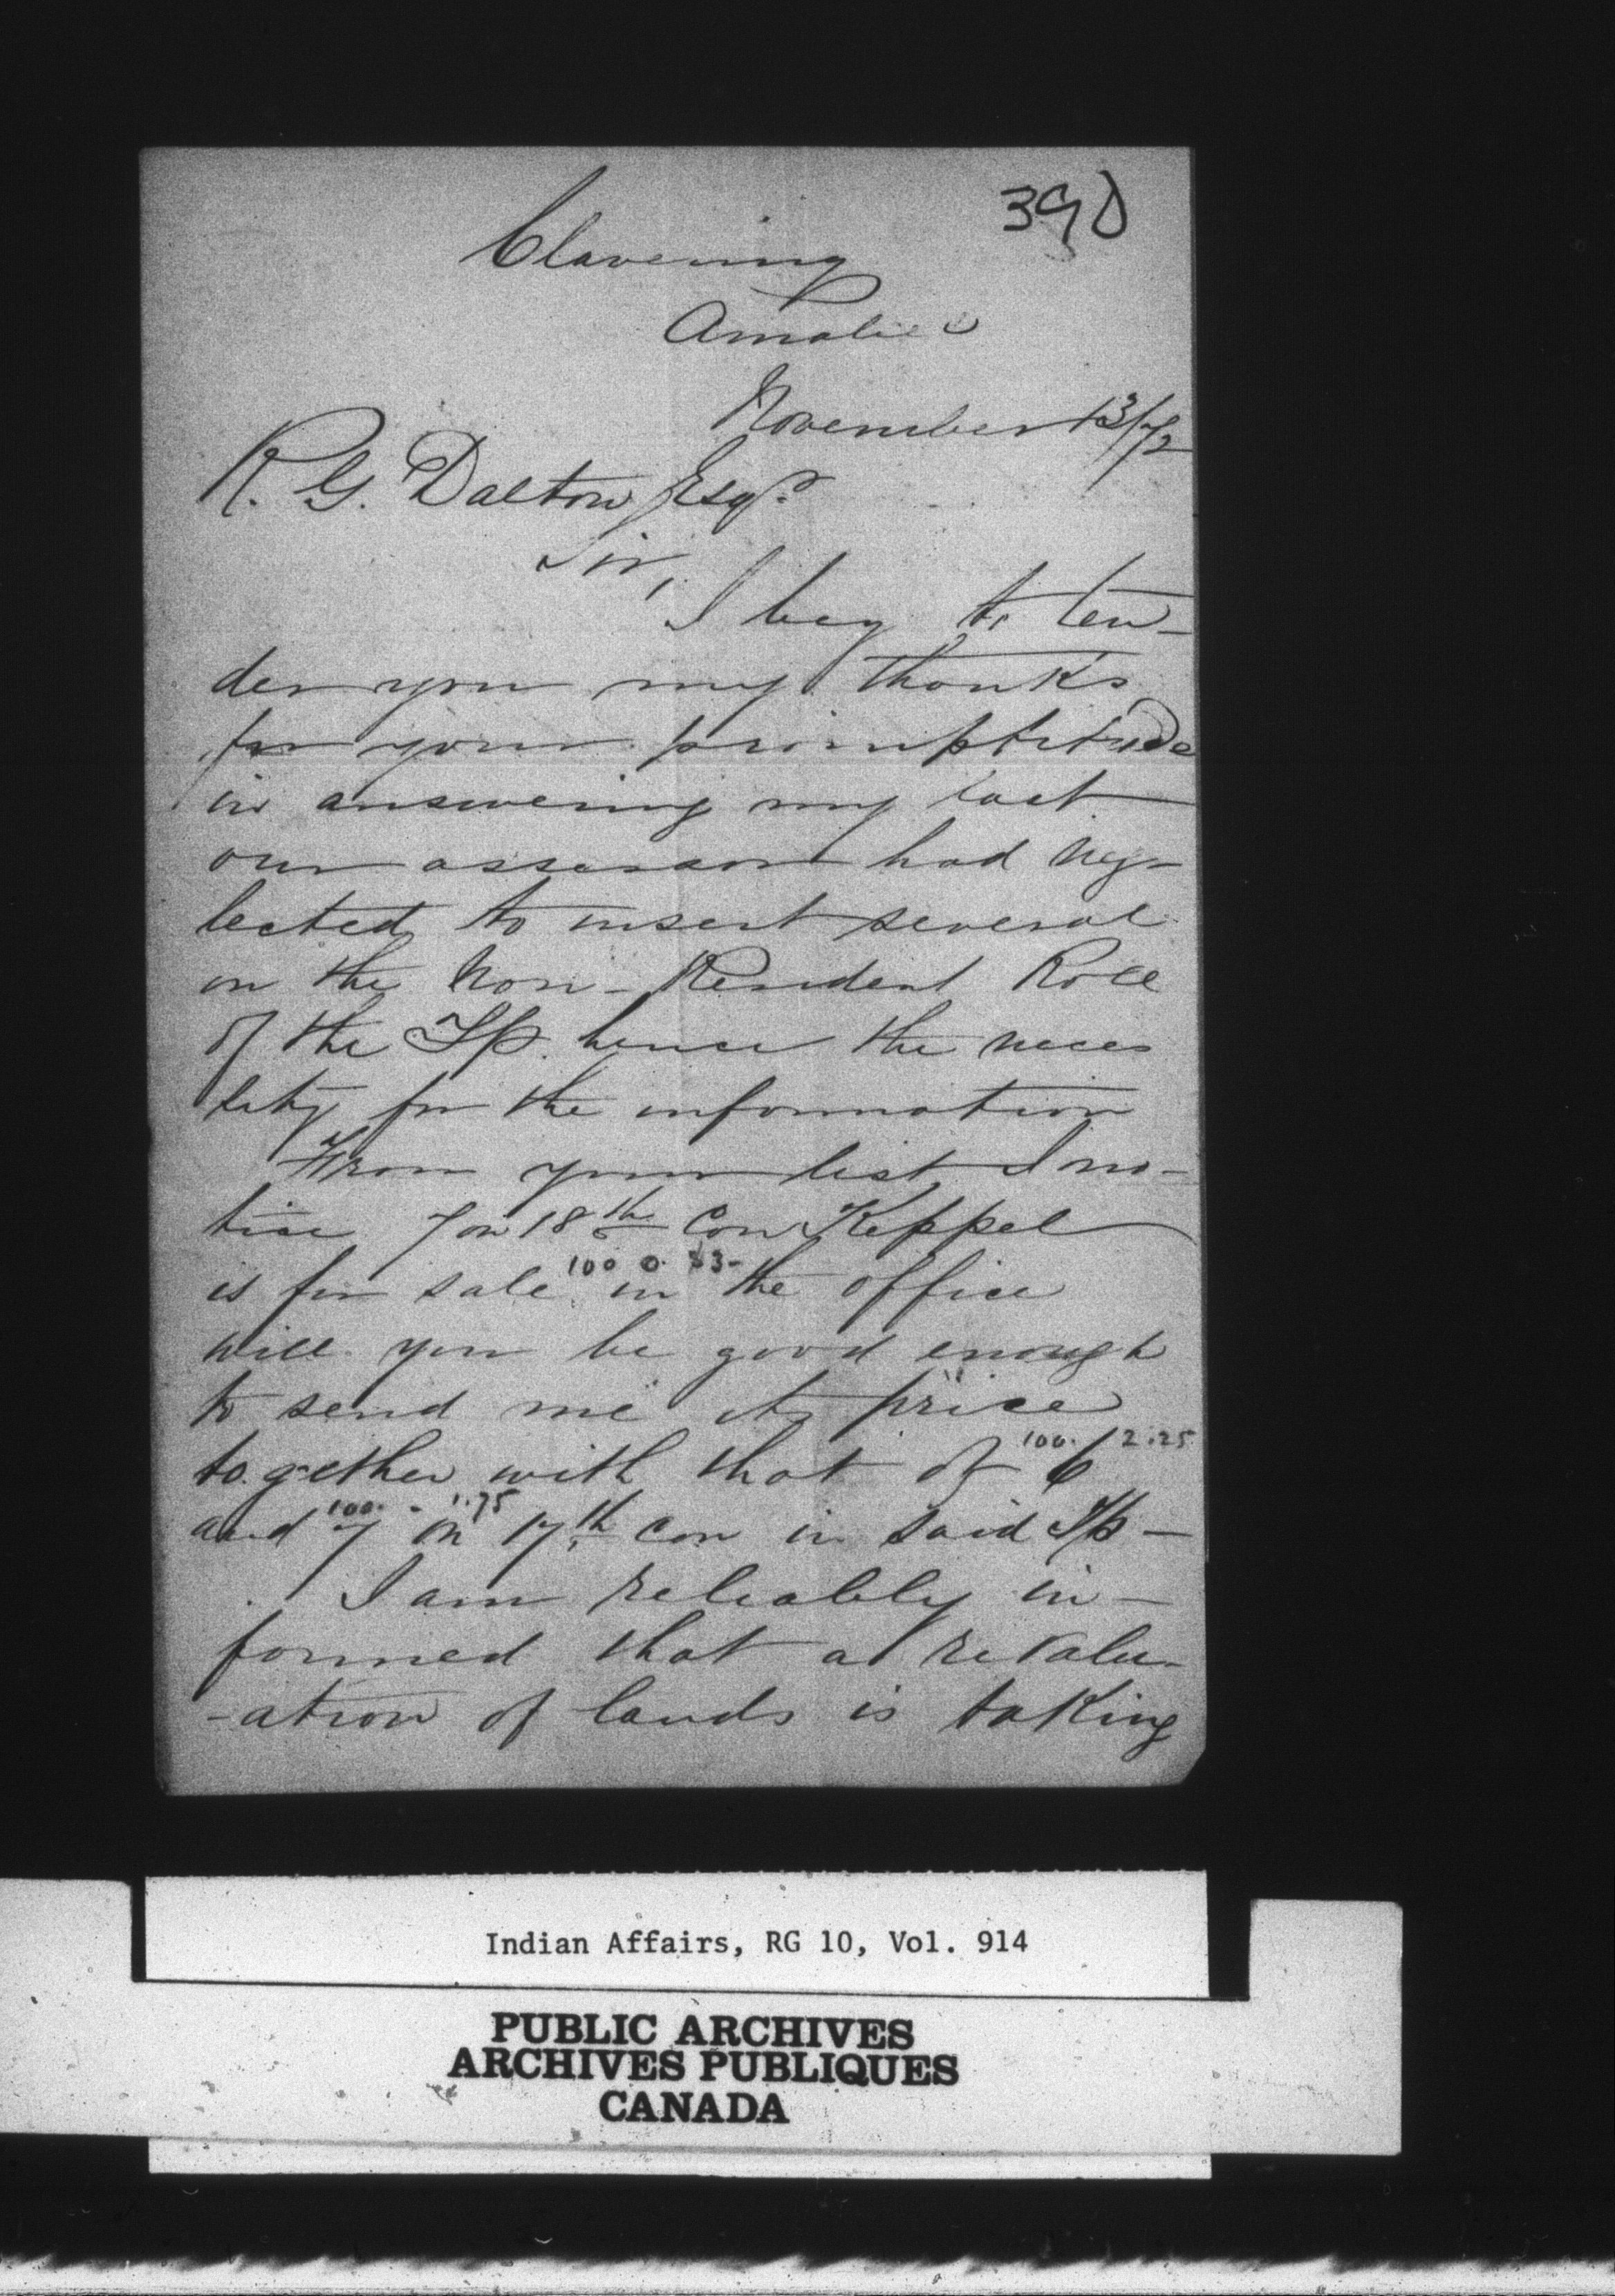 390
Clavering
November 13/72
R. G. Dalton Esqr
Sir,
I beg to ten-
der you my thanks
for your promptitude
in answering my last
our assessor had neg-
lected to insert several
on the Non-Resident Roll
of the Tp. hence the neces
sity for the information
From your list I no-
tice 7 on 18th Con Keppel
100 @ $3-
is for sale in the office
will you be good enough
to send me its price
100. 2.25
together with that of 6
100. - 1.75
and 7 in 17th Con in said Tp -
I am reliably in-
formed that a revalu-
-ation of lands is taking
Indian Affairs, RG 10, Vol. 914
PUBLIC ARCHIVES
ARCHIVES PUBLIQUES
CANADA